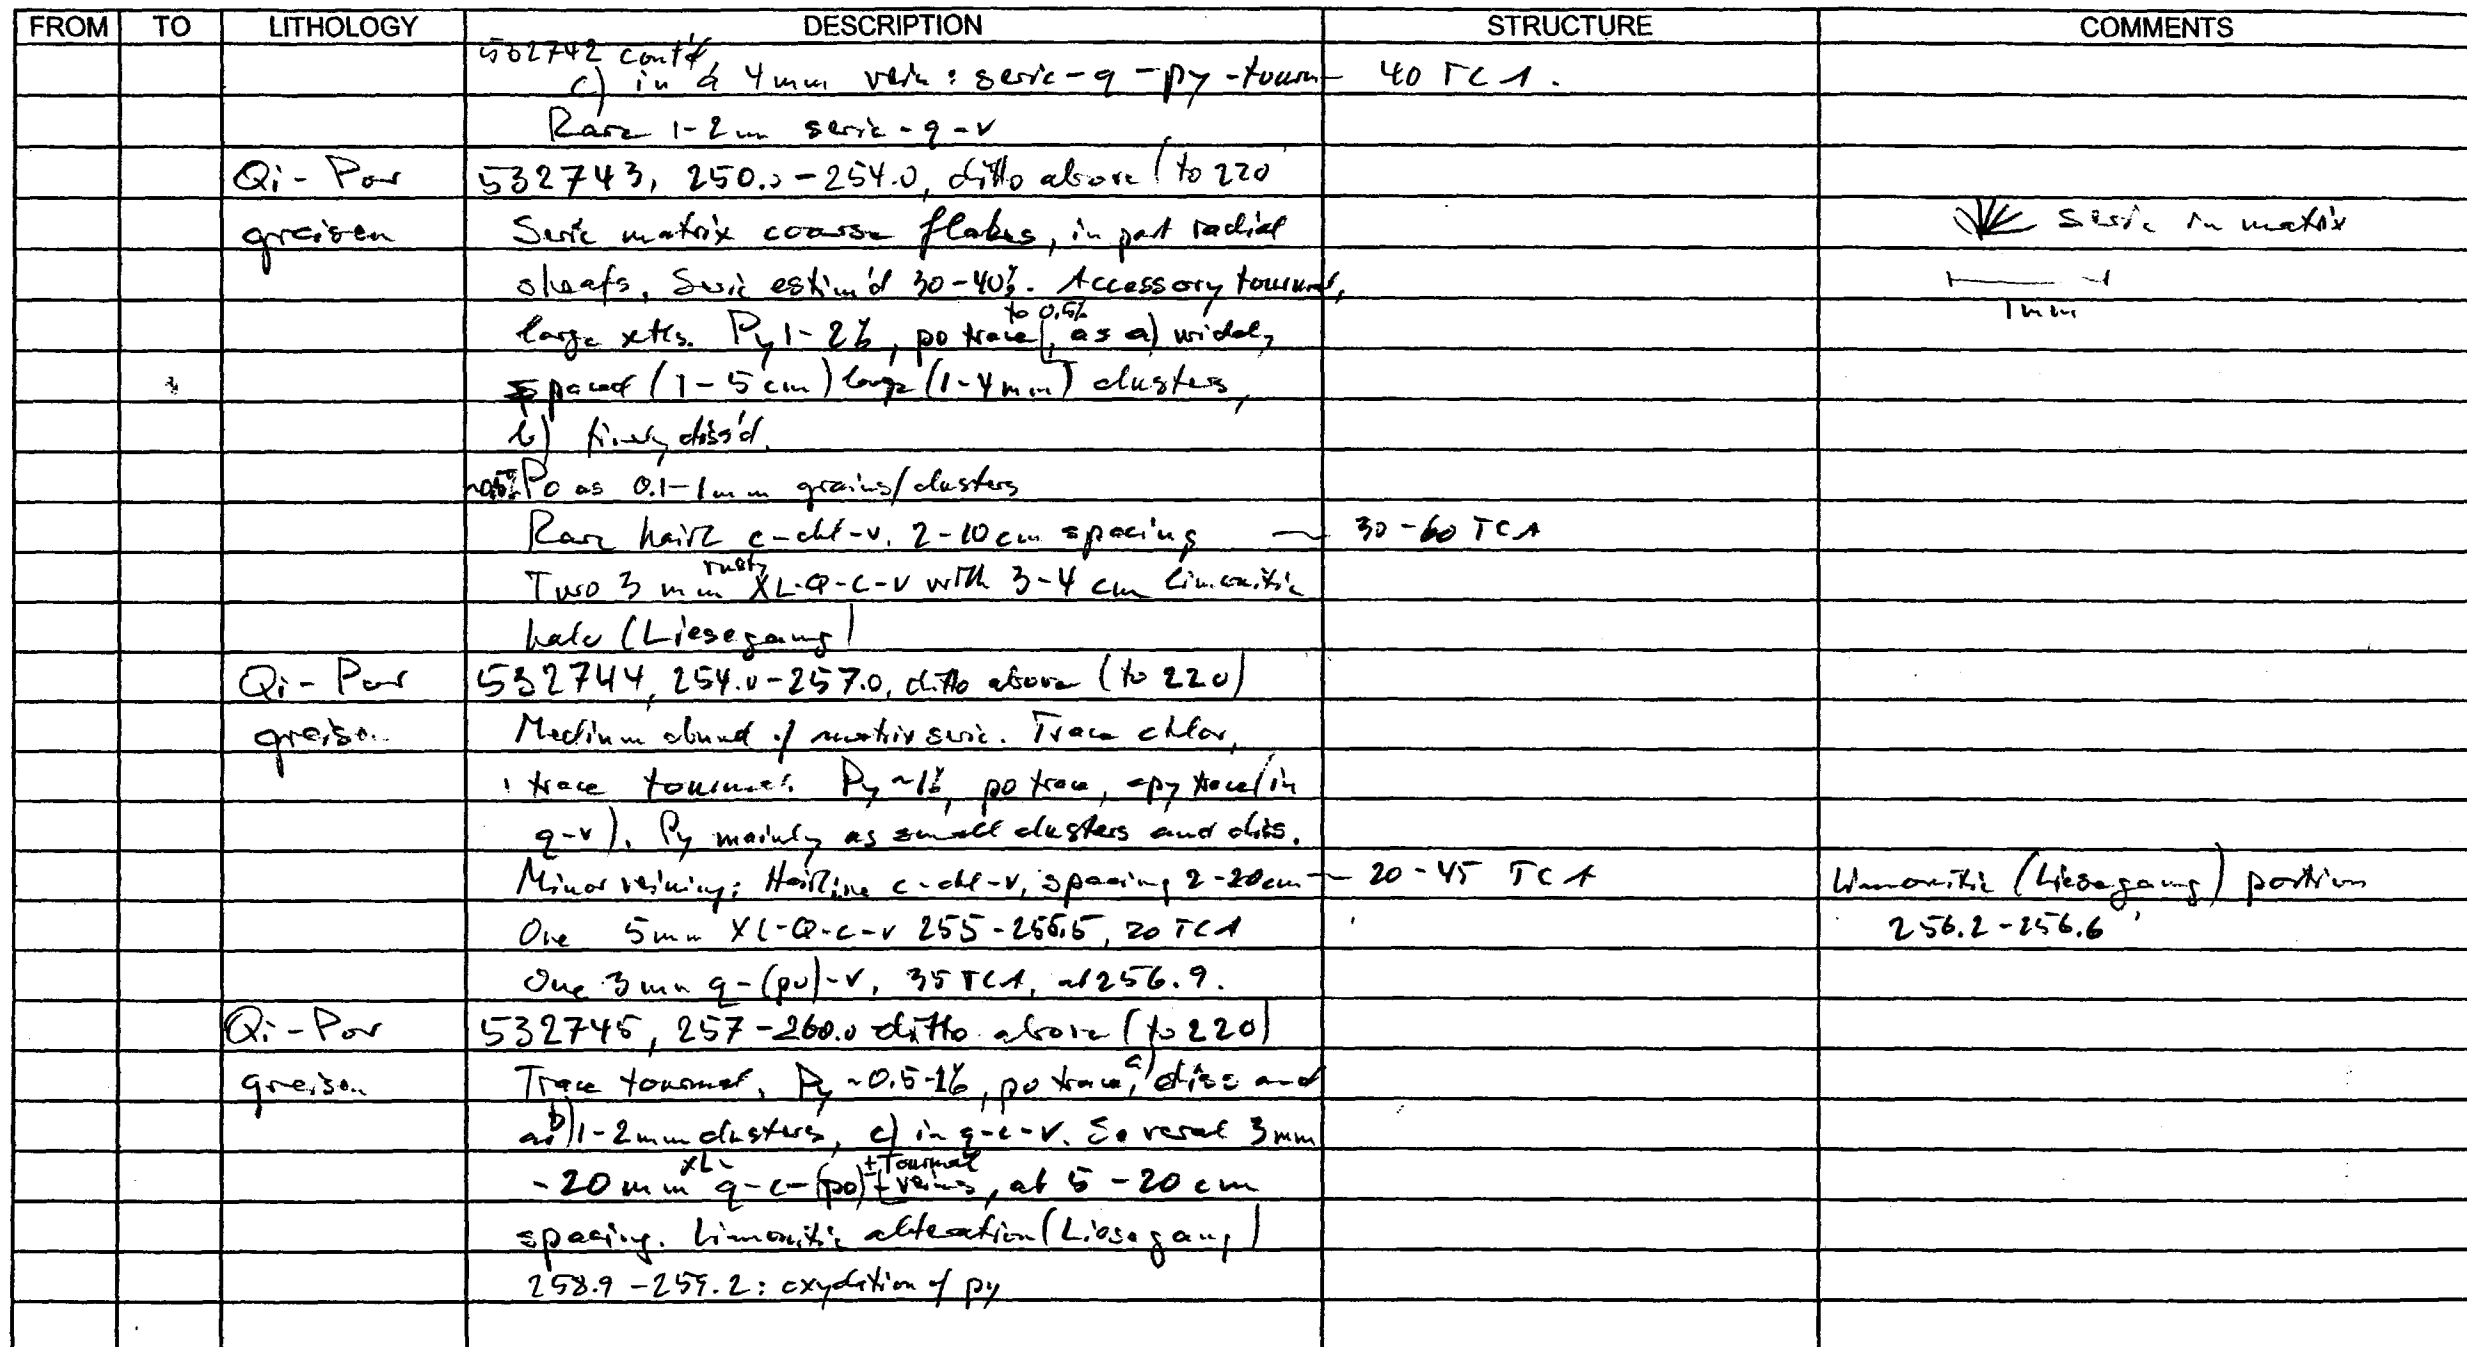 FROM TO LITHOLOGY DESCRIPTION STRUCTURE COMMENTS
532742 cont'd
c) in a 4mm vein: seric-q-py-tourm — 40 TCA.
Rare 1-2mm seric-q-v
Qi-Por 532743, 250.0-254.0, ditto above (to 220
greisen Seric matrix coarse flakes, in part radial seric in matrix
sheafs, Seric estim'd 30-40%. Accessory tourmal,
1mm
to 0.5%
large xtls. Py 1-2%, po trace, as a) widely
spaced (1-5cm) large (1-4mm) clusters,
b) finely diss'd.
~0.5% Po as 0.1-1mm grains/clusters
Rare hairl c-chl-v. 2-10cm spacing — 30-60 TCA
rusty
Two 3 mm XL-Q-C-V with 3-4 cm limonitic
halo (Liesegang)
Qi-Por 532744, 254.0-257.0, ditto above (to 220)
greisen Medium abund of matrix seric. Trace chlor,
trace tourmal. Py ~1%, po trace, apy trace (in
q-v). Py mainly as small clusters and diss.
Minor veining: Hairline c-chl-v, spacing 2-20cm — 20-45 TCA Limonitic (Liesegang) portion
One 5mm XL-Q-c-v 255-256.5, 20 TCA 256.2-256.6
One 3mm q-(po)-v, 35 TCA, at 256.9.
Qi-Por 532745, 257-260.0 ditto above (to 220)
greisen Trace tourmal. Py ~0.5-1%, po trace, a) diss and
as b) 1-2mm clusters, c) in q-c-v. Several 3mm
XL- ±Tourmal
-20mm q-c-(po) veins, at 5-20cm
spacing. Limonitic alteration (Liesegang)
258.9-259.2: oxydation of py